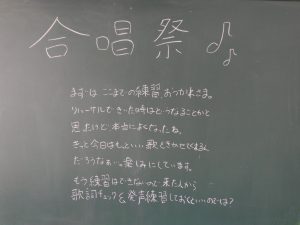 合唱祭♪♪
まずは ここまでの練習おつかれさま。
リハーサルできいた時はどうなることかと
思ったけど 本当によくなったね。
きっと今日はもっといい歌ときかせてくれるん
だろうなぁ…。楽しみにしています。
もう練習はできないので 来た人から
歌詞チェック&発声練習しておくといいのでは?